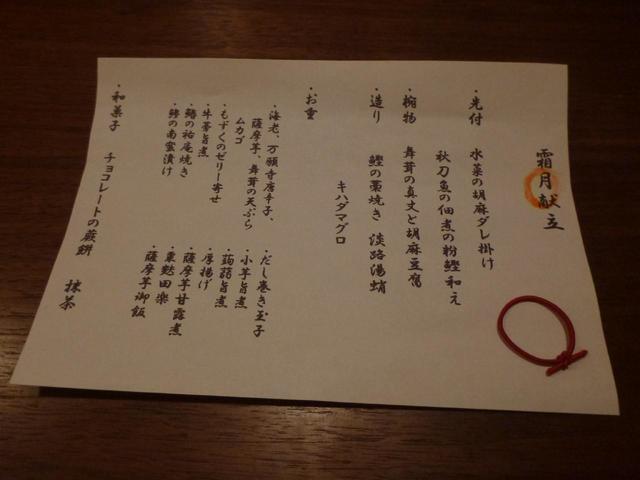 霜月献立
・先付　水菜の胡麻ダレ掛け
秋刀魚の佃煮の粉鰹和え
・椀物　舞茸の真丈と胡麻豆腐
・造り　鰹の藁焼き　淡路湯蛸
キハダマグロ
・お重
・海老、万願寺唐辛子、
薩摩芋、舞茸の天ぷら
ムカゴ
・もずくのゼリー寄せ
・牛蒡旨煮
・鰆の祐庵焼き
・鯵の南蛮漬け
・だし巻き玉子
・小芋旨煮
・蒟蒻旨煮
・厚揚げ
・薩摩芋甘露煮
・粟麩田楽
・薩摩芋御飯
・和菓子　チョコレートの蕨餅　抹茶